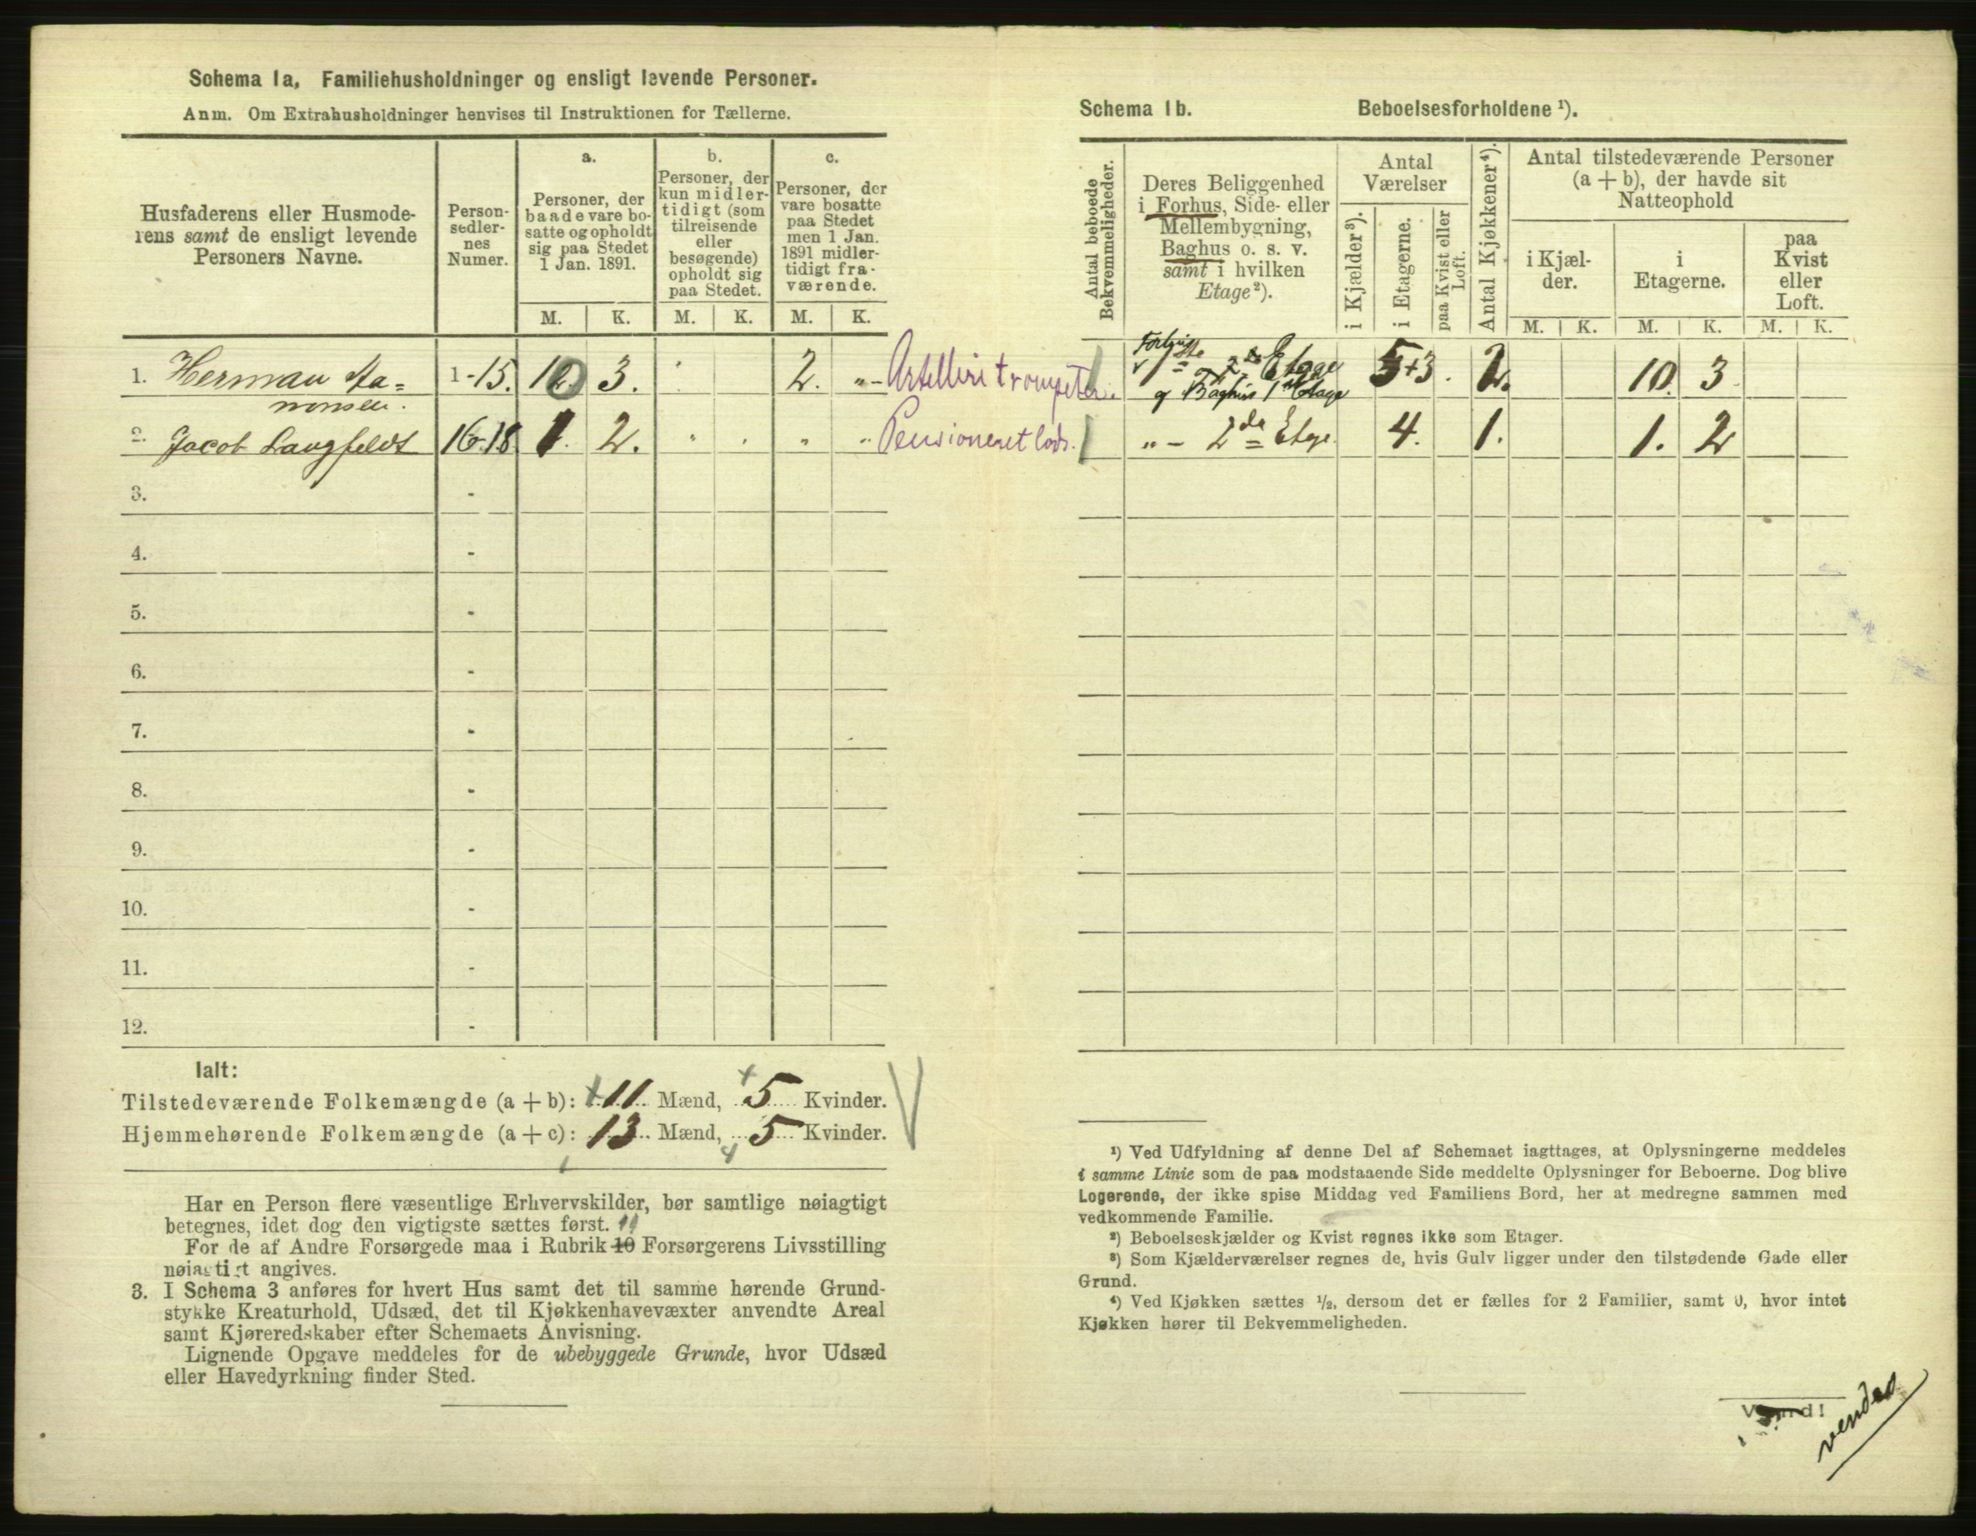 Schema 1a, Familiehusholdninger og ensligt levende Personer.
Anm. Om Extrahusholdninger henvises til Instruktionen for Tællerne.
Husfaderens eller Husmode-
rens samt de ensligt levende
Personers Navne.
Person-
sedler-
nes
Numer.
a.
Personer, der
baade vare bo-
satte og opholdt
sig paa Stedet
1 Jan. 1891.
b.
Personer, der
kun midler-
tidigt (som
tilreisende
eller
besøgende)
opholdt sig
paa Stedet.
c.
Personer, der
vare bosatte
paa Stedet
men 1 Jan.
1891 midler-
tidigt fra-
værende.
M. K. M. K. M. K.
1. Herman 1-15. 10 3. 2. „- Artelleritrompeter.
2. Jacob Langfeldt 16-18 1. 2. „ . „ „ Pensioneret lods.
3. -
4. -
5. -
6. -
7. -
8. -
9. -
10. -
11. -
12. -
Ialt:
Tilstedeværende Folkemængde (a + b): 11 Mænd, 5 Kvinder.
Hjemmehørende Folkemængde (a + c): 13 Mænd, 5 Kvinder.
Har en Person flere væsentlige Erhvervskilder, bør samtlige nøiagtigt
betegnes, idet dog den vigtigste sættes først. 11
For de af Andre Forsørgede maa i Rubrik 10 Forsørgerens Livsstilling
nøiagtigt angives.
3. I Schema 3 anføres for hvert Hus samt det til samme hørende Grund-
stykke Kreaturhold, Udsæd, det til Kjøkkenhavevæxter anvendte Areal
samt Kjøreredskaber efter Schemaets Anvisning.
Lignende Opgave meddeles for de ubebyggede Grunde, hvor Udsæd
eller Havedyrkning finder Sted.
Schema 1b. Beboelsesforholdene ¹).
Antal beboede
Bekvemmeligheder.
Deres Beliggenhed
i Forhus, Side- eller
Mellembygning,
Baghus o. s. v.
samt i hvilken
Etage²).
Antal
Værelser
i Kjælder³).
i Etagerne.
paa Kvist eller
Loft.
Antal Kjøkkener⁴).
Antal tilstedeværende Personer
(a + b), der havde sit
Natteophold
i Kjæl-
der.
i
Etagerne.
paa
Kvist
eller
Loft.
M. K. M. K. M. K.
Forhus
1ste og 2 Etage 5+3. 2. 10. 3
og Baghus 1 Etage
„ - 2de Etage. 4. 1. 1. 2
¹) Ved Udfyldning af denne Del af Schemaet iagttages, at Oplysningerne meddeles
i samme Linie som de paa modstaaende Side meddelte Oplysninger for Beboerne. Dog blive
Logerende, der ikke spise Middag ved Familiens Bord, her at medregne sammen med
vedkommende Familie.
²) Beboelseskjælder og Kvist regnes ikke som Etager.
³) Som Kjælderværelser regnes de, hvis Gulv ligger under den tilstødende Gade eller
Grund.
⁴) Ved Kjøkken sættes ½, dersom det er fælles for 2 Familier, samt 0, hvor intet
Kjøkken hører til Bekvemmeligheden.
Vend!
vendes